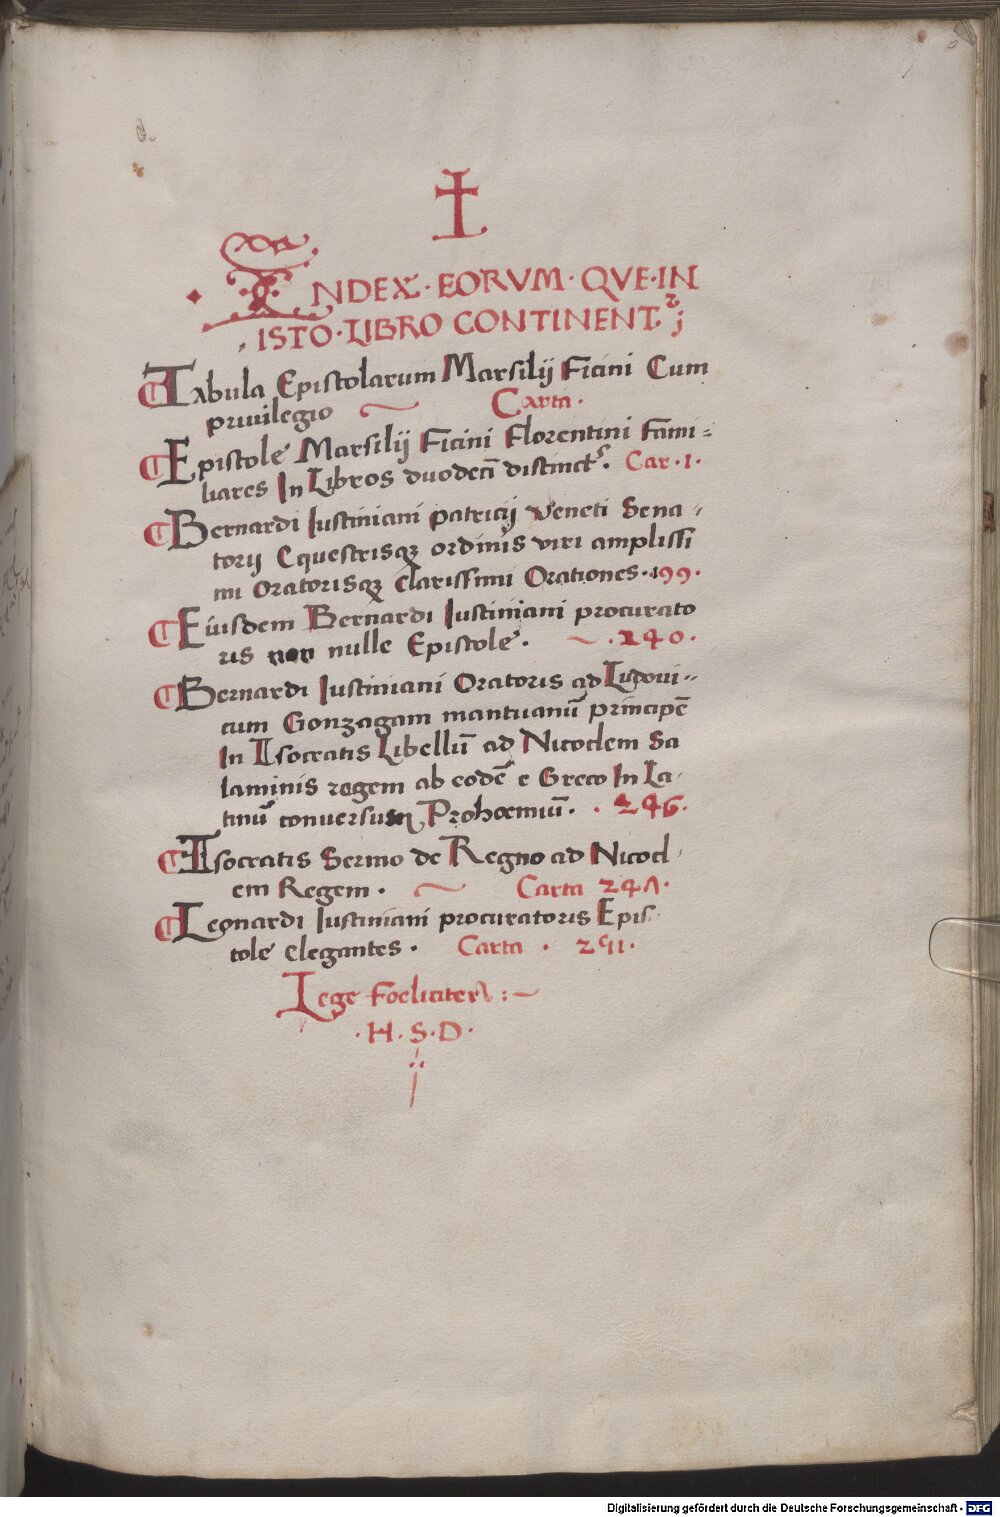 INDEX · EORVM · QVE · IN
ISTO · LIBRO CONTINENT.
Tabula Epistolarum Marsilij Ficini Cum
priuilegio Carta ·
Epistole Marsilij Ficini Florentini Fami=
liares In Libros duodecī distinct. Car · 1 ·
Bernardi Iustiniani patricij Veneti Sena -
torij Equestrisqꝫ ordinis viri amplissi
mi Oratorisqꝫ clarissimi Orationes · 199 ·
Eiusdem Bernardi Iustiniani procurato
ris non nulle Epistole · 240 ·
Bernardi Iustiniani Oratoris ad Ludoui-
cum Gonzagam mantuanū principē
In Isocratis Libellū ad Nicoclem Sa
laminis regem ab eodē e Greco In La-
tinū conuersum Prohoemiū · 246 ·
Isocratis Sermo de Regno ad Nicocl
em Regem · Carta 247 ·
Leonardi Iustiniani procuratoris Epis
tole elegantes · Carta ·
Lege Foeliciter : -
· H · S · D ·
Digitalisierung gefördert durch die Deutsche Forschungsgemeinschaft - DFG